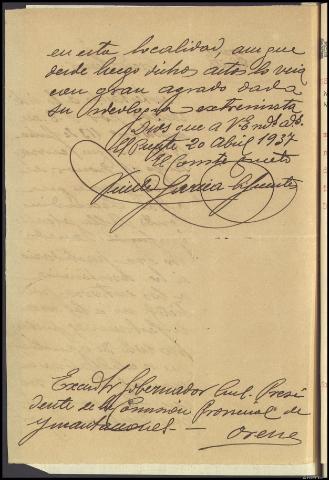 en esta localidad, aunque
desde luego dichos actos los veia
con gran agrado dada
su ideologia extremista
Dios gue a V.E. ms. as.
El Puente 20 Abril 1937
El Comte Puesto
Garcia
Excmo Sr Gobernador Civil Presi
dente de la Comision Provincial de
Yncautaciones —
Orense